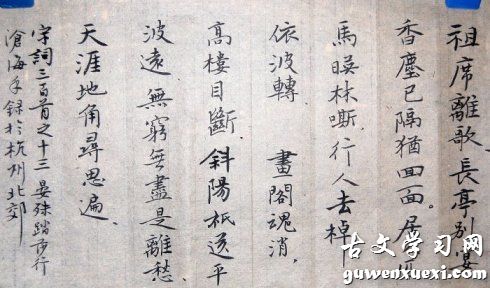 祖席離歌長亭別宴
香塵已隔猶回面。居
馬暎林嘶行人去棹
依波轉　畫閣魂消，
高樓目斷斜陽祇送平
波遠無窮無盡是離愁
天涯地角尋思遍
宋詞三百首之十三 晏殊踏莎行
滄海手錄於杭州北郊
古文学习网
guwenxuexi.com